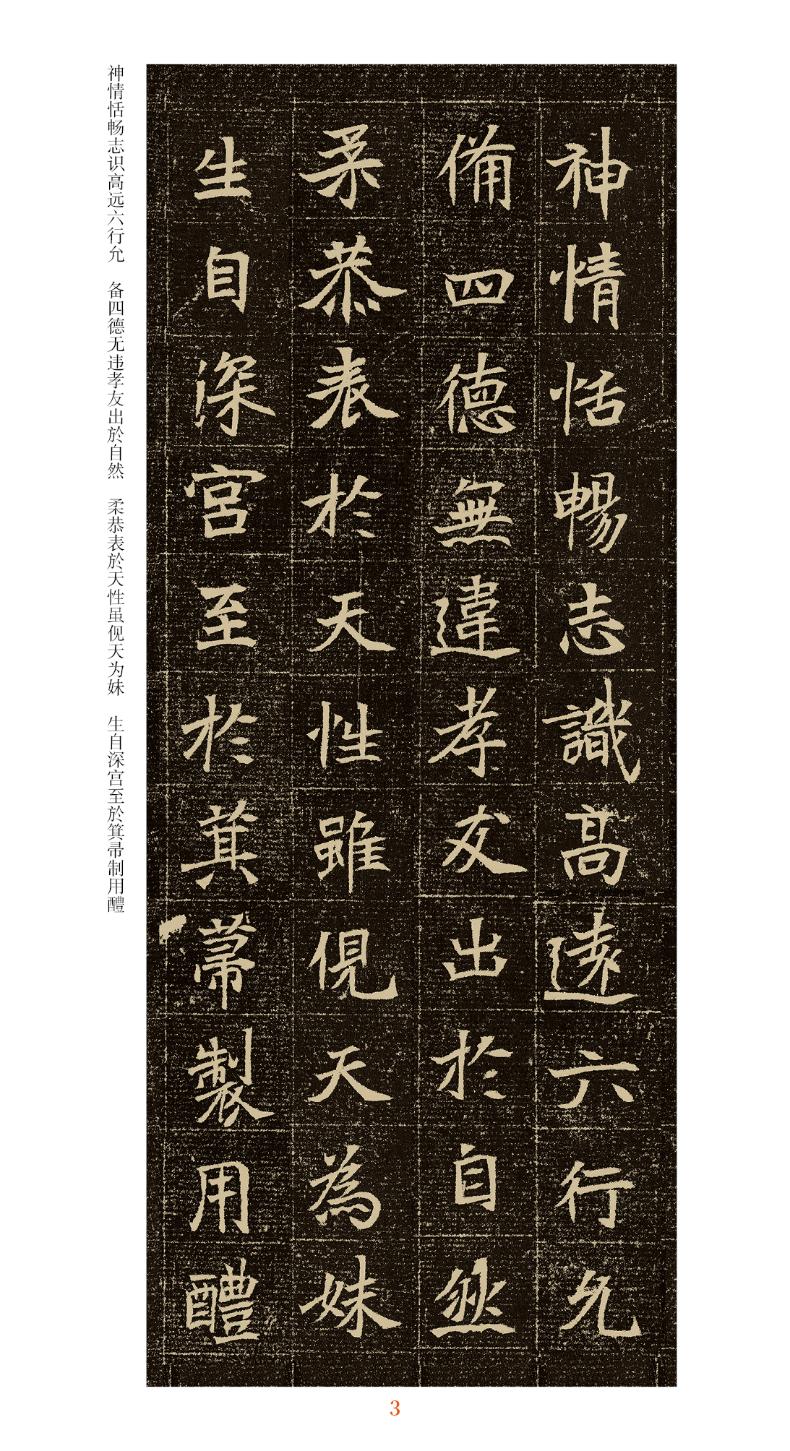 神情恬暢志識高遠六行允
備四德無違孝友出於自然
柔恭表於天性雖俔天為妹
生自深宮至於箕帚製用醴
神情恬畅志识高远六行允 备四德无违孝友出於自然 柔恭表於天性虽俔天为妹 生自深宫至於箕帚制用醴
3